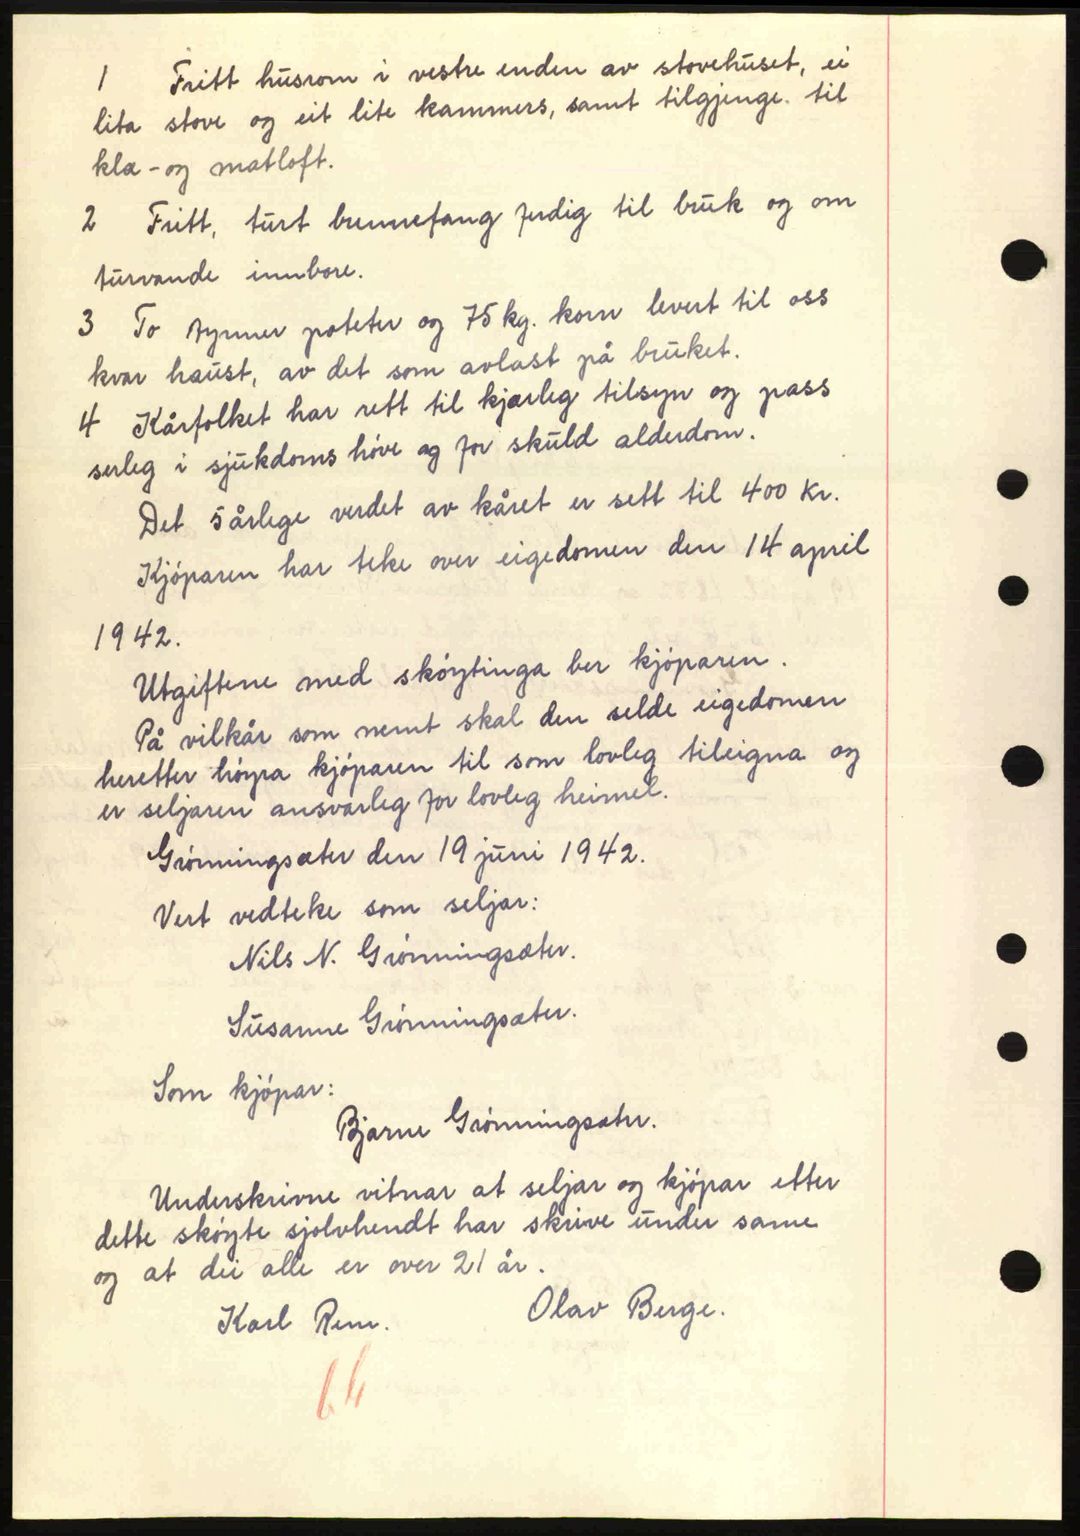 1 Fritt husrom i vestre enden av stovehuset, ei
lita stove og eit lite kammers, samt tilgjenge til
klæ - og matloft.
2 Fritt, turt brennefang ferdig til bruk og om
turvande innbore.
3 To tynner poteter og 75 kg. korn levert til oss
kvar haust, av det som avlast på bruket.
4 Kårfolket har rett til kjærleg tilsyn og pass
serleg i sjukdoms høve og for skuld alderdom.
Det 5 årlege verdet av kåret er sett til 400 Kr.
Kjøparen har teke over eigedomen den 14 april
1942.
Utgiftene med skøytinga ber kjøparen.
På vilkår som nemt skal den selde eigedomen
heretter høyra kjøparen til som lovleg tileigna og
er seljaren ansvarleg for lovleg heimel.
Grønningsæter den 19 juni 1942.
Vert vedteke som seljar:
Nils N. Grønningsæter.
Susanne Grønningsæter.
Som kjøpar:
Bjarne Grønningsæter.
Underskrivne vitnar at seljar og kjøpar etter
dette skøyte sjølvhendt har skrive under same
og at dei alle er over 21 år.
Karl Rem. Olav Berge.
64